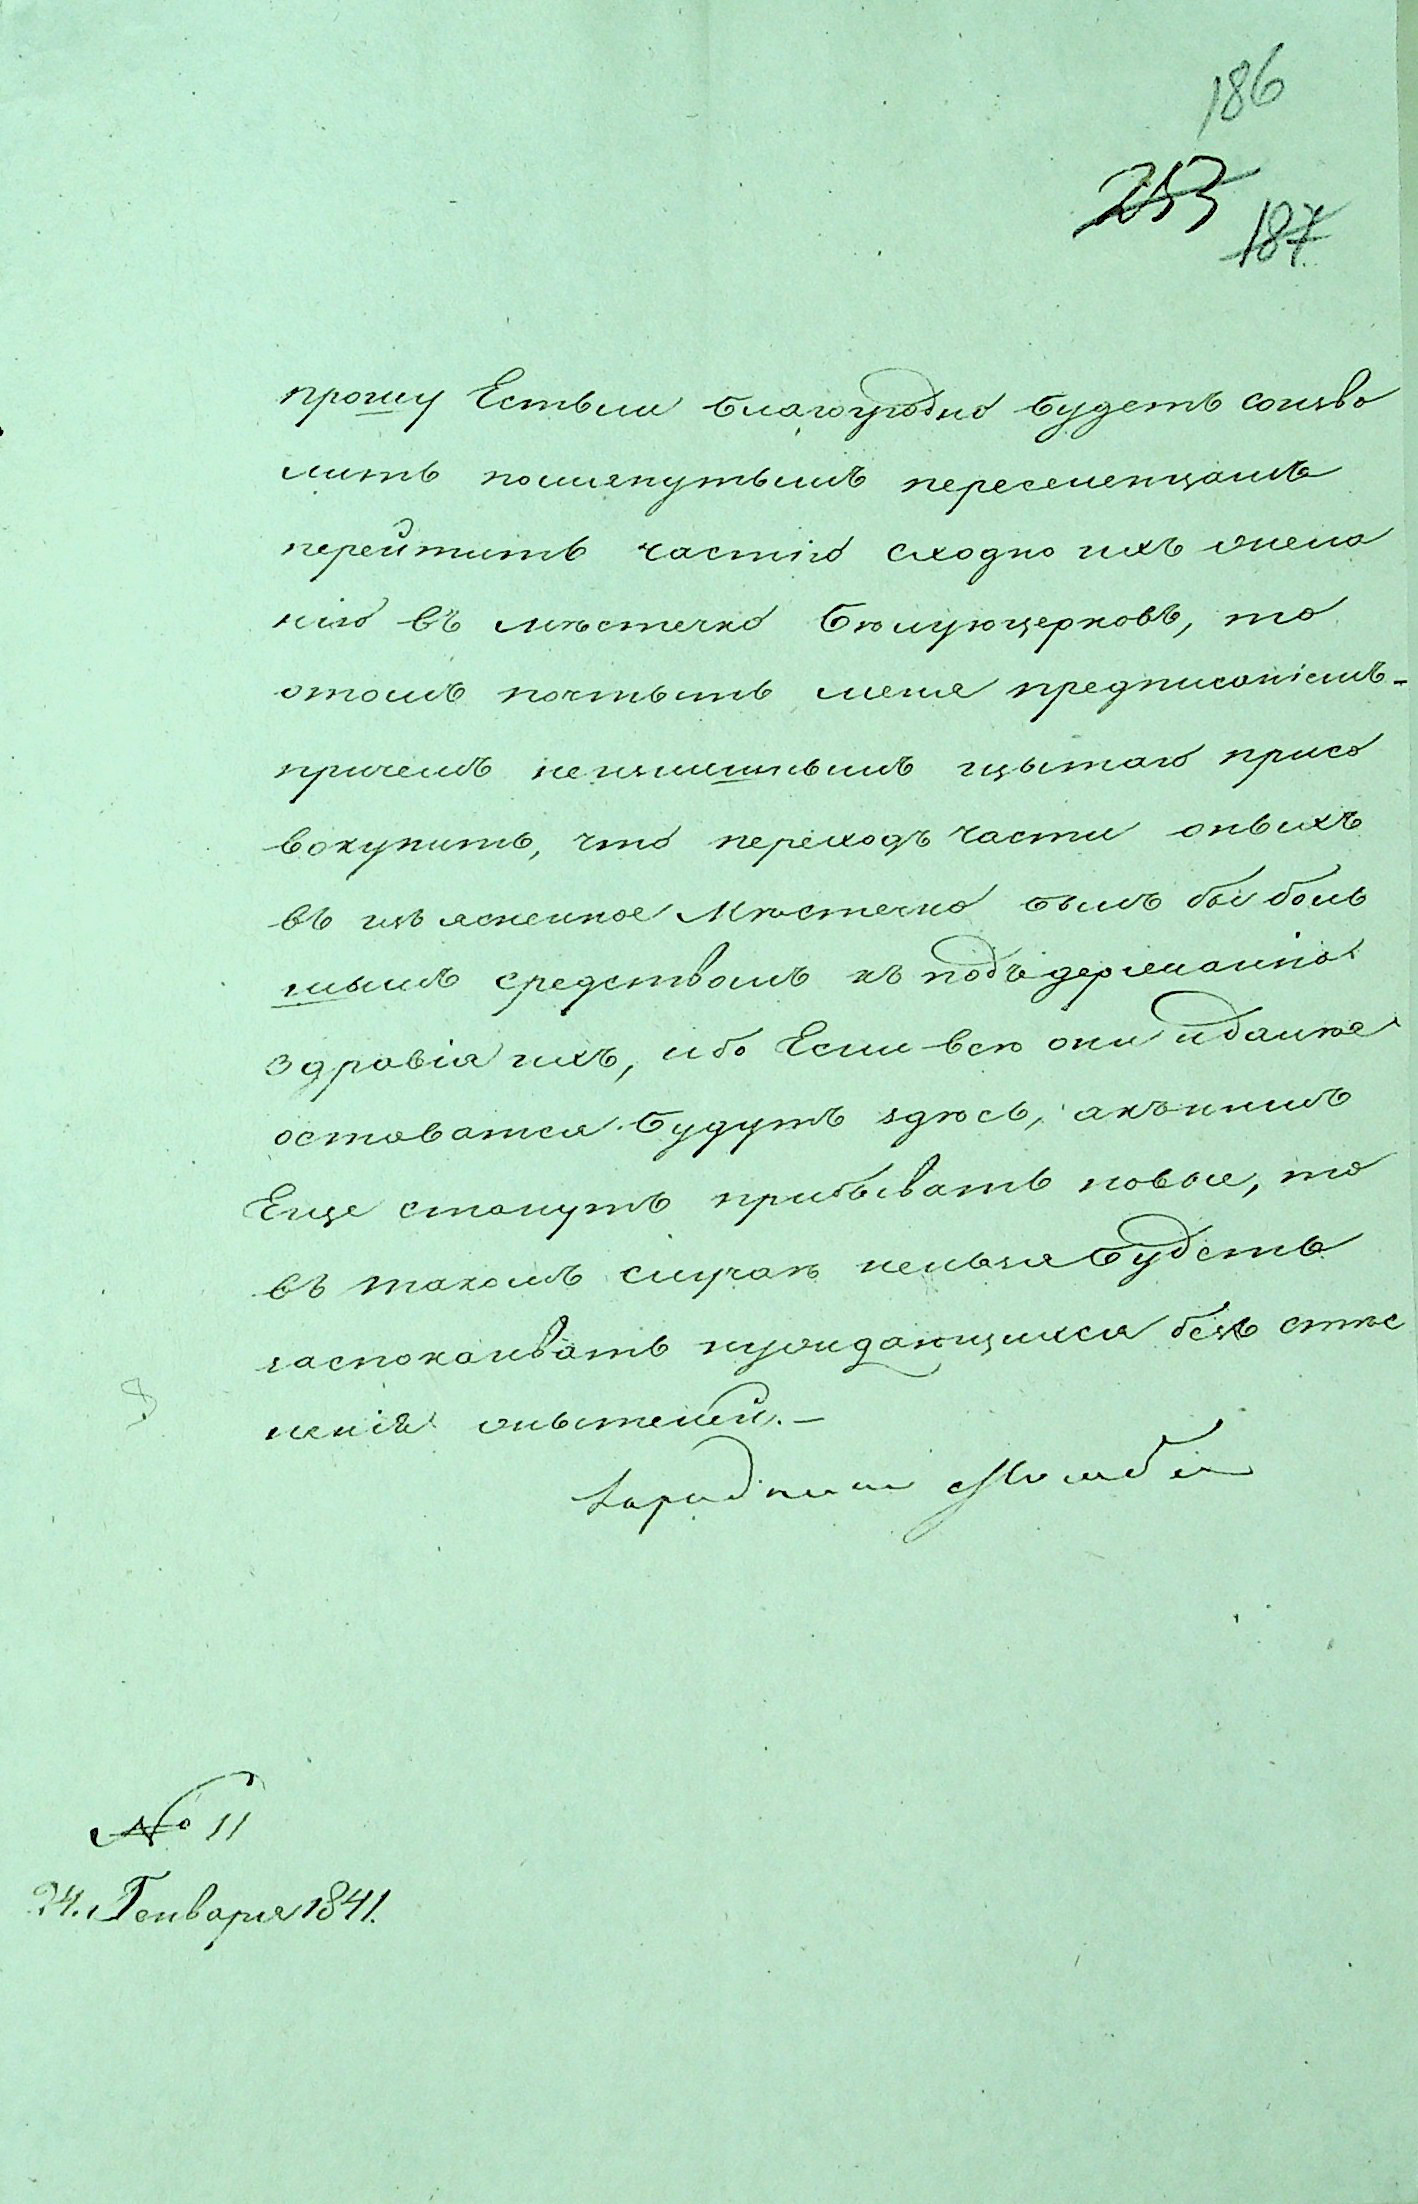 186
253
187
прошу Естьли благоугодно будетъ соизво
лить помянутымъ переселенцамъ
перейтить частію сходно ихъ жела
нію въ мѣстечко Бѣлуюцерковъ, то
отомъ почтыть меня предписаніемъ.-
причемъ неизлишнымъ щытаю присо
вокупить, что переходъ части оныхъ
въ изъясненное Мѣстечко былъ бы боль
шымъ средствомъ къ подъдержанію
здравія ихъ, ибо Если всѣ они идалѣе
оставатся будутъ здѣсь, акънимъ
Еще станутъ прибывать новые, то
въ такомъ случаѣ нельзя будетъ
заспокаивать нуждающихся безъ стѣс
неніѣ жытелей.-
№ 11
24. Генваря 1841.